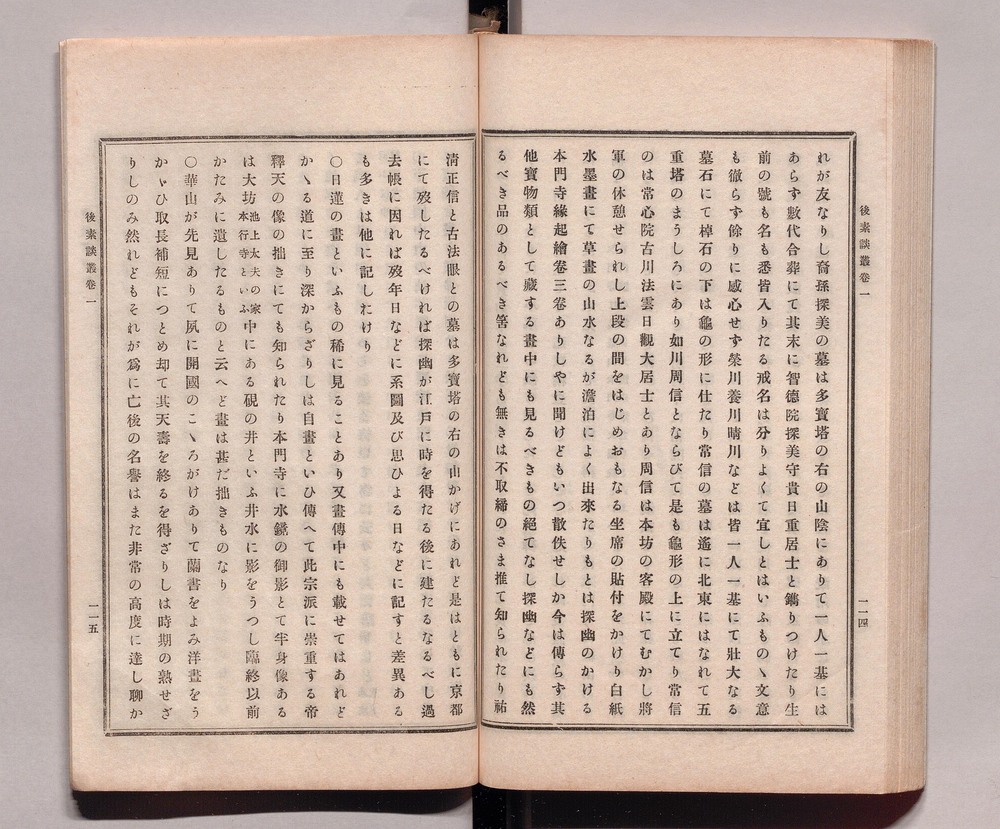 後素談叢卷一
一一四
れが友なりし裔孫探美の墓は多寶塔の右の山陰にありて一人一基には
あらず數代合葬にて其末に智德院探美守貴日重居士と鐫りつけたり生
前の號も名も悉皆入りたる戒名は分りよくて宜しとはいふものヽ文意
も徹らず餘りに感心せず榮川養川晴川などは皆一人一基にて壯大なる
墓石にて棹石の下は龜の形に仕たり常信の墓は遙に北東にはなれて五
重塔のまうしろにあり如川周信とならびて是も龜形の上に立てり常信
のは常心院古川法雲日觀大居士とあり周信は本坊の客殿にてむかし將
軍の休憩せられし上段の間をはじめおもなる坐席の貼付をかけり白紙
水墨畫にて草畫の山水なるが澹泊によく出來たりもとは探幽のかける
本門寺緣起繪卷三卷ありしやに聞けどもいつ散佚せしか今は傳らず其
他寶物類として藏する畫中にも見るべきもの絕てなし探幽などにも然
るべき品のあるべき筈なれども無きは不取締のさま推て知られたり祐
淸正信と古法眼との墓は多寶塔の右の山かげにあれど是はともに京都
にて歿したるべければ探幽が江戸に時を得たる後に建たるなるべし過
去帳に因れば歿年日などに系圖及び思ひよる日などに記すと差異ある
も多きは他に記したけり
〇日蓮の畫といふもの稀に見ることあり又畫傳中にも載せてはあれど
かヽる道に至り深からざりしは自畫といひ傳へて此宗派に崇重する帝
釋天の像の拙きにても知られたり本門寺に水鏡の御影とて半身像ある
は大坊池上太夫の家本行寺といふ中にある硯の井といふ井水に影をうつし臨終以前
かたみに遺したるものと云へど畫は甚だ拙きものなり
〇華山が先見ありて夙に開國のこヽろがけありて蘭書をよみ洋畫をう
かヾひ取長補短につとめ却て其天壽を終るを得ざりしは時期の熟せざ
りしのみ然れどもそれが爲に亡後の名譽はまた非常の高度に達し聊か
後素談叢卷一
一一五